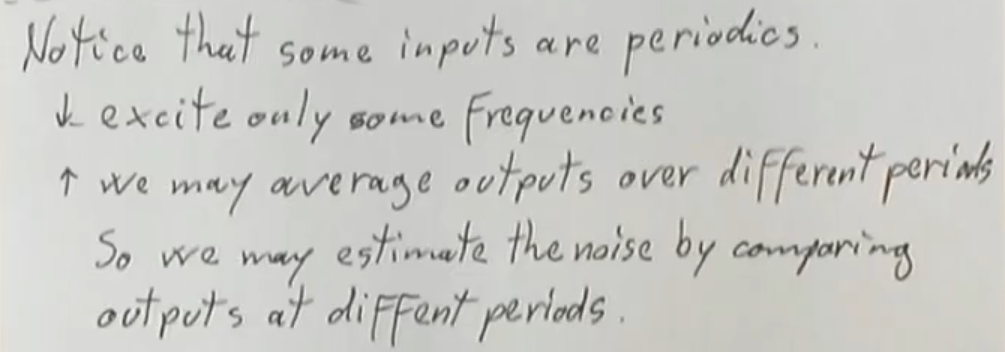 Notice that some inputs are periodics.
↓ excite only some frequencies
↑ we may average outputs over different periods
So we may estimate the noise by comparing
outputs at diffent periods.